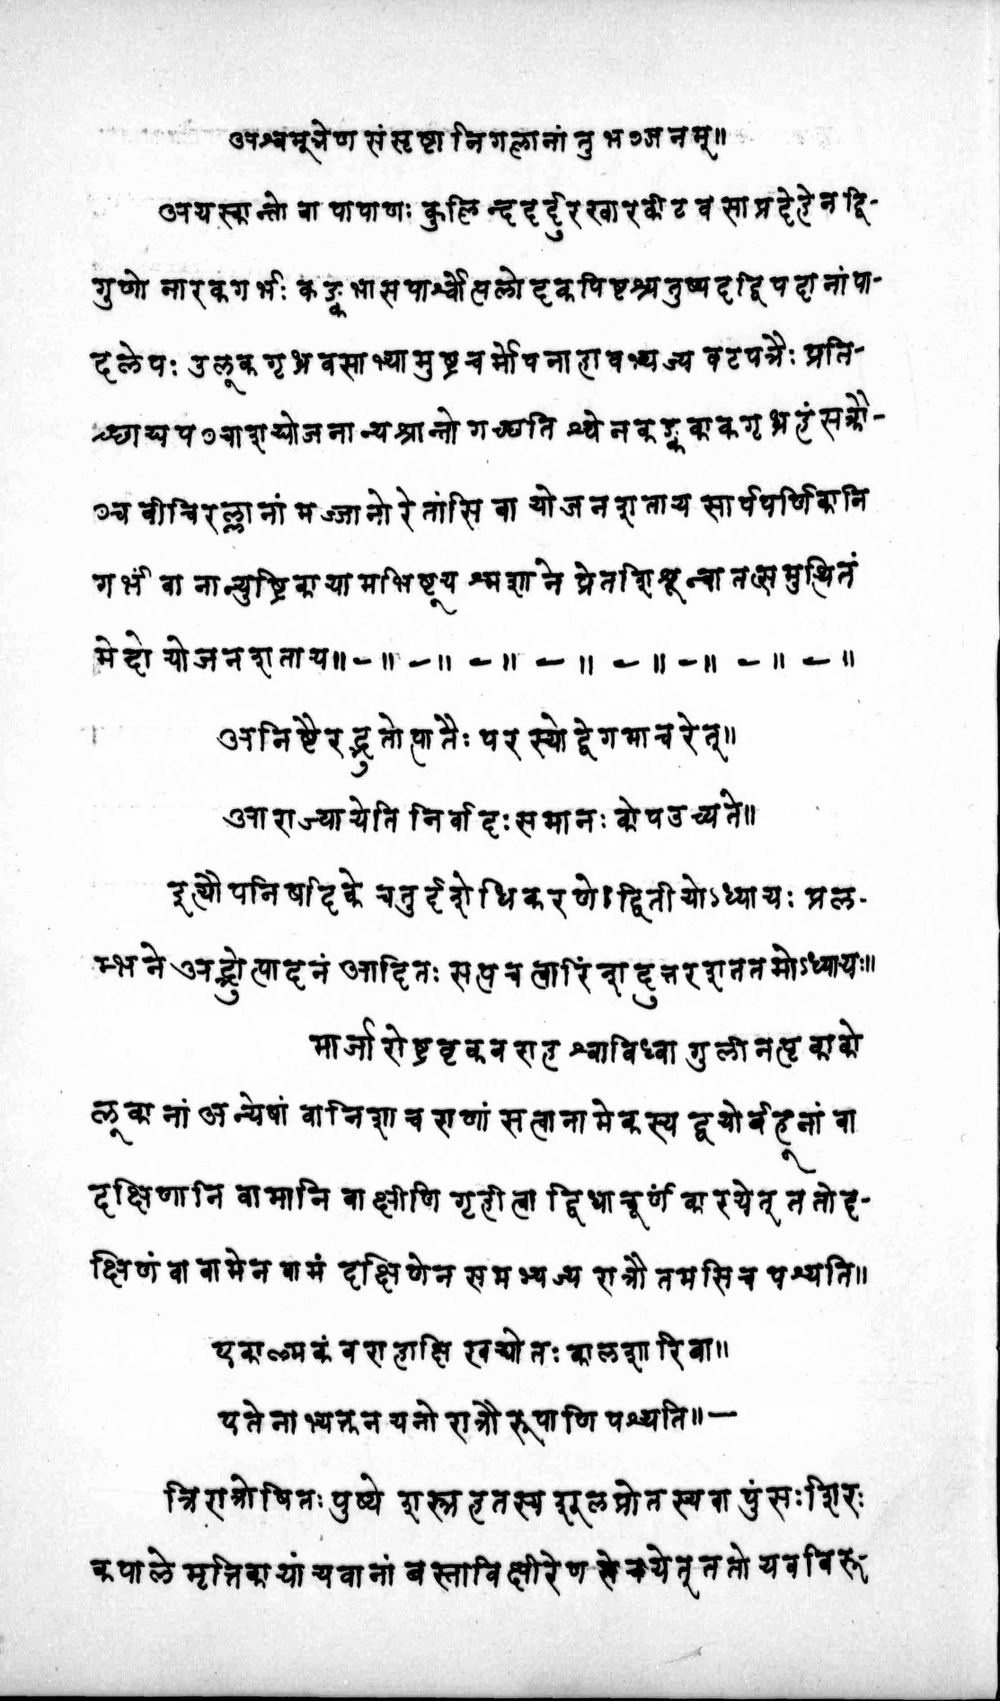 अश्वमूत्रेण संसृष्टा निगलानां तु भञ्जनम्॥
अयस्कान्तो वा पाषाणः कुलिन्ददर्दुरखारकीटवसाप्रदेहेन द्वि-
गुणो नारकगर्भः कङ्कभासपार्श्वोत्पलोदकपिष्टश्चतुष्पदद्विपदानां पा-
दलेपः उलूकगृध्रवसाभ्यामुष्ट्रचर्मोपनाहावभ्यज्य वटपत्रैः प्रति-
च्छाद्य पञ्चाशद्योजनान्यश्रान्तो गच्छति श्येनकङ्ककाकगृध्रहंसक्रौ-
ञ्चवीचिरल्लानां मज्जानो रेतांसि वा योजनशताय सार्पपर्णिकानि
गर्भं वा नान्युष्ट्रिकायामभिष्टूय श्मशाने प्रेतशिशून्वा तत्समुत्थितं
मेदो योजनशताय॥-॥ -॥ -॥ - ॥ - ॥ -॥ - ॥ - ॥
अनिष्टैरद्भुतोत्पातैः परस्योद्वेगमाचरेत्॥
आराज्यायेति निर्वादःसमानः कोप उच्यते॥
इत्यौपनिषदिके चतुर्दशेधिकरणे द्वितीयोऽध्यायः प्रल-
म्भने अद्भुतोत्पादनं आदितः सप्तचत्वारिंशदुत्तरशततमोऽध्यायः॥
मार्जारोष्ट्रवृकवराहश्वाविध्वागुलीनप्तृकाको
लूकानां अन्येषां वा निशाचराणां सत्वानामेकस्य द्वयोर्बहूनां वा
दक्षिणानि वामानि वाक्षीणि गृहीत्वा द्विधा चूर्णं कारयेत् ततो द-
क्षिणं वा वामेन वामं दक्षिणेन समभ्यज्य रात्रौ तमसि च पश्यति॥
एकाम्लकं वराहाक्षि खद्योतः कालशारिबा॥
एतेनाभ्यक्तनयनो रात्रौ रूपाणि पश्यति॥—
त्रिरात्रोषितः पुष्ये शस्त्रहतस्य शूलप्रोतस्य वा पुंसः शिरः
कपाले मृत्तिकायां यवानां बस्ताविक्षीरेण सेचयेत् ततो यवविरू